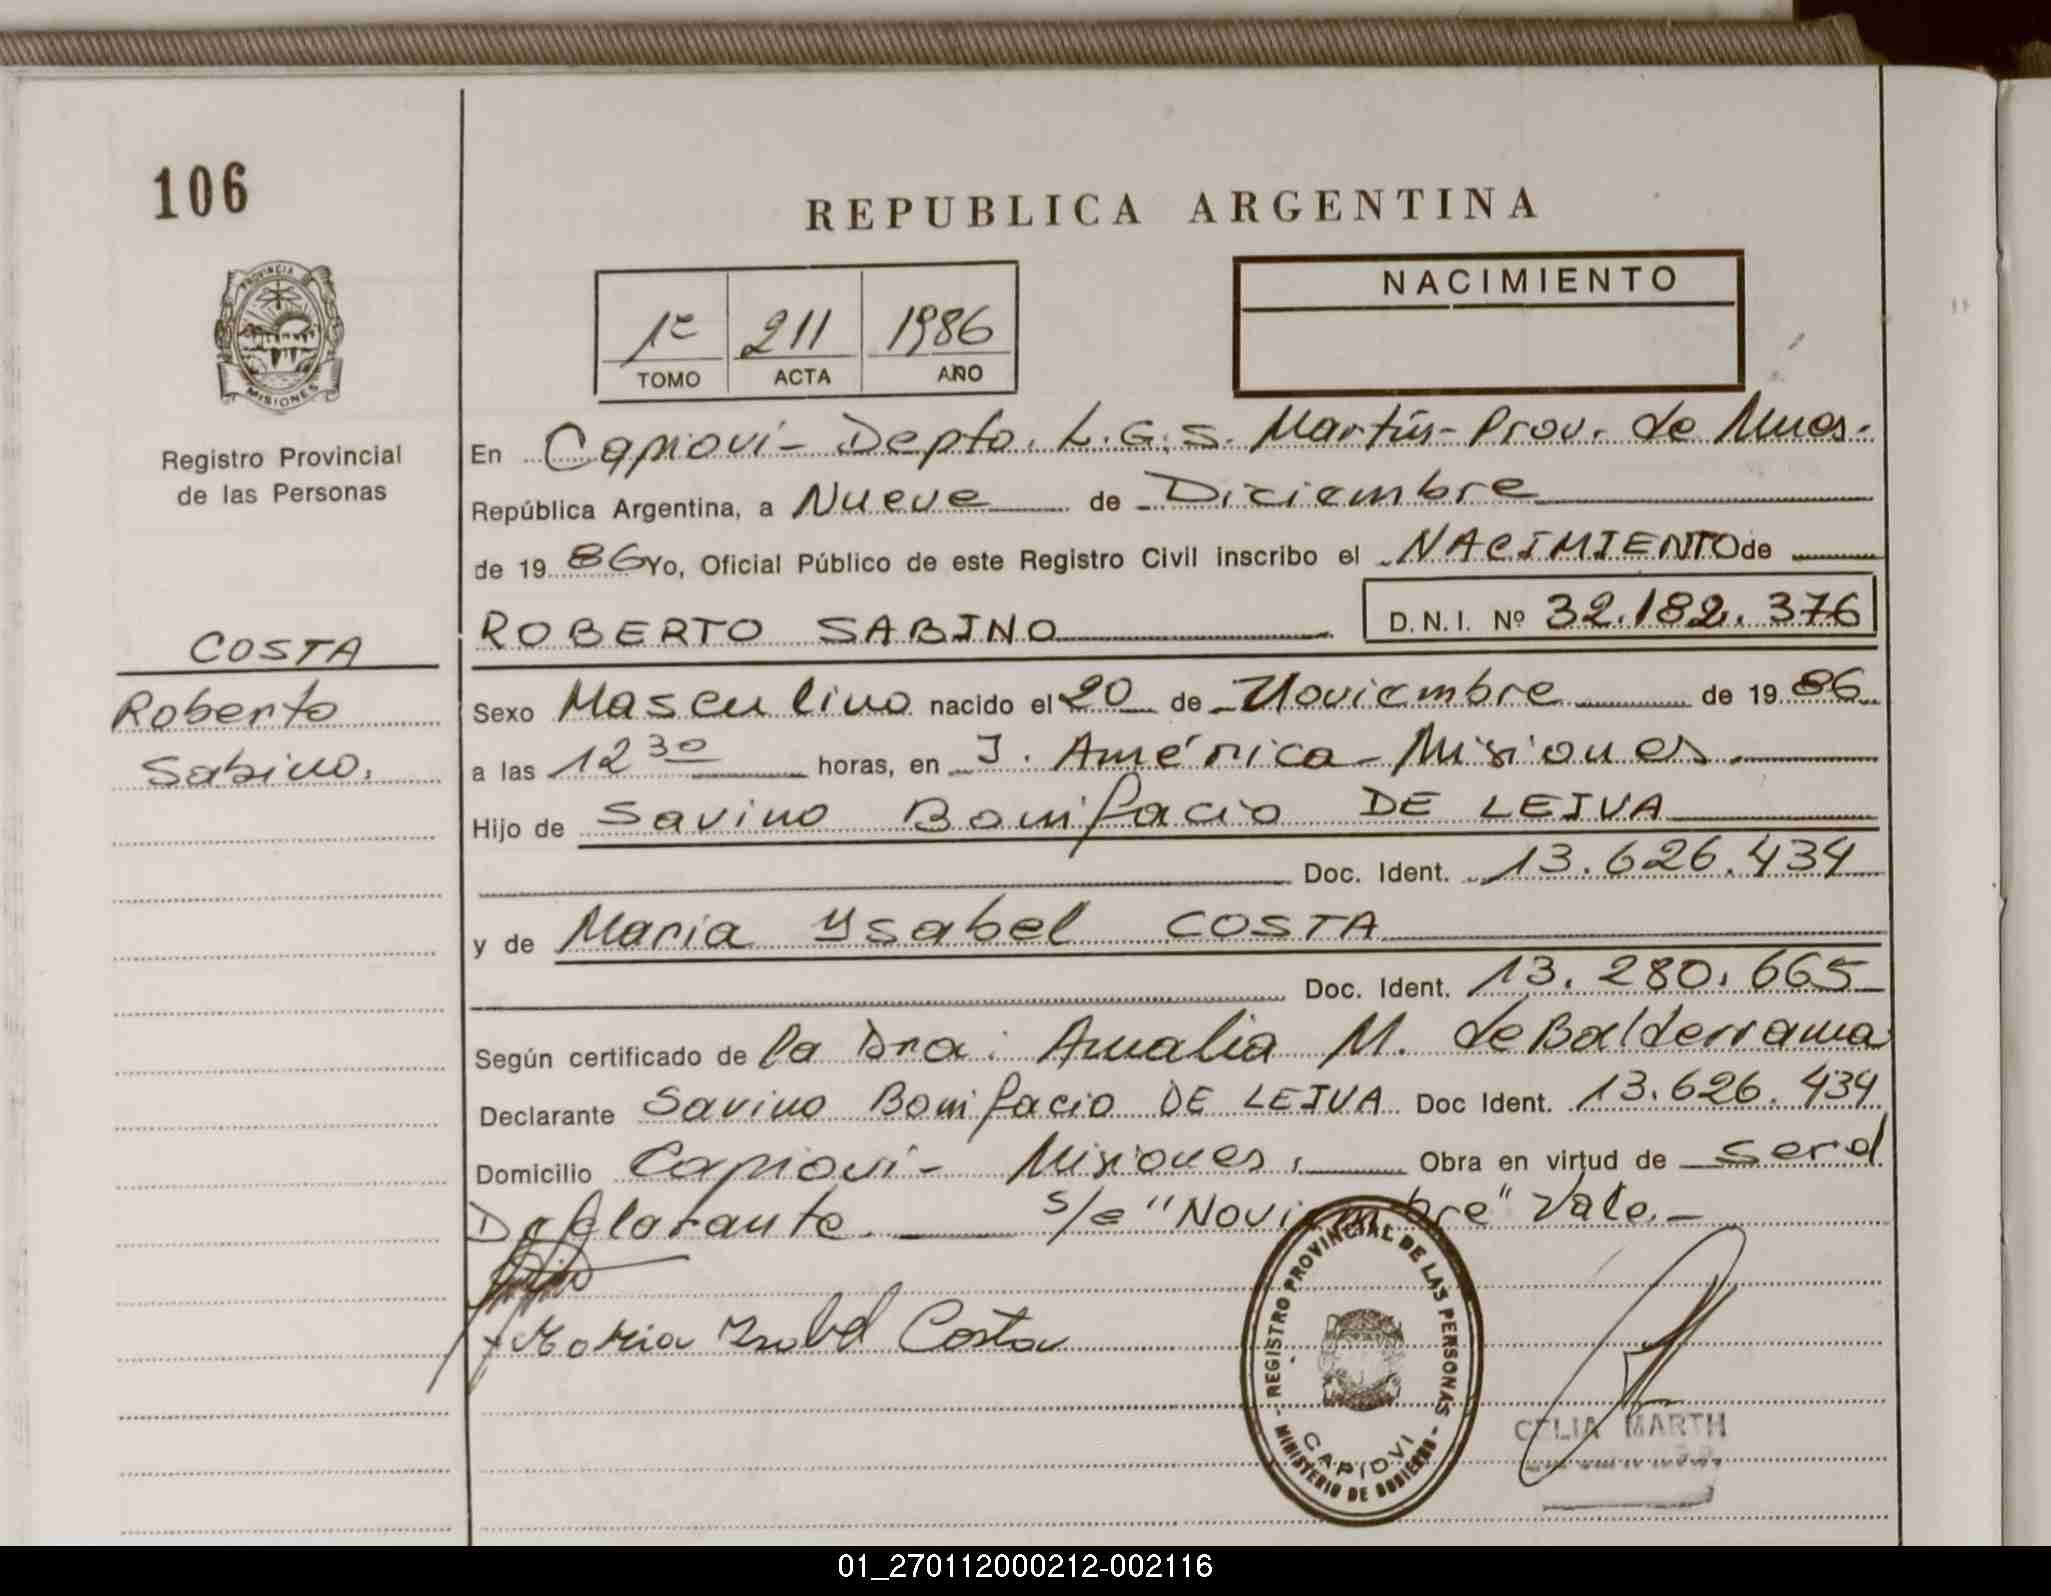 106
REPUBLICA ARGENTINA
PROVINCIA DE
MISIONES
Registro Provincial
de las Personas
1º 211 1986
TOMO ACTA AÑO
NACIMIENTO
En Capioví - Depto. L.G.S. Martín - Prov. de Mnes.
República Argentina, a Nueve de Diciembre
de 1986 Yo, Oficial Público de este Registro Civil inscribo el NACIMIENTO de
ROBERTO SABINO D.N.I. Nº 32.182.376
COSTA
Roberto
Sabino.
Sexo Masculino nacido el 20 de Noviembre de 1986
a las 12 30 horas, en J. América - Misiones.
Hijo de Savino Bonifacio DE LEIVA
Doc. Ident. 13.626.434
y de Maria Ysabel COSTA
Doc. Ident. 13.280.665
Según certificado de la Dra. Amalia M. de Balderrama
Declarante Savino Bonifacio DE LEIVA Doc Ident. 13.626.434
Domicilio Capioví - Misiones. Obra en virtud de ser el
Declarante. s/e "Noviembre" Vale.-
Maria Isabel Costa
REGISTRO PROVINCIAL DE LAS PERSONAS
CAPIOVI
- MINISTERIO DE GOBIERNO -
CELIA MARTH
01_270112000212-002116